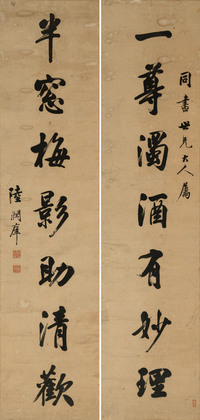 同書世兄大人屬
一尊濁酒有妙理
半窗梅影助清歡
陸潤庠